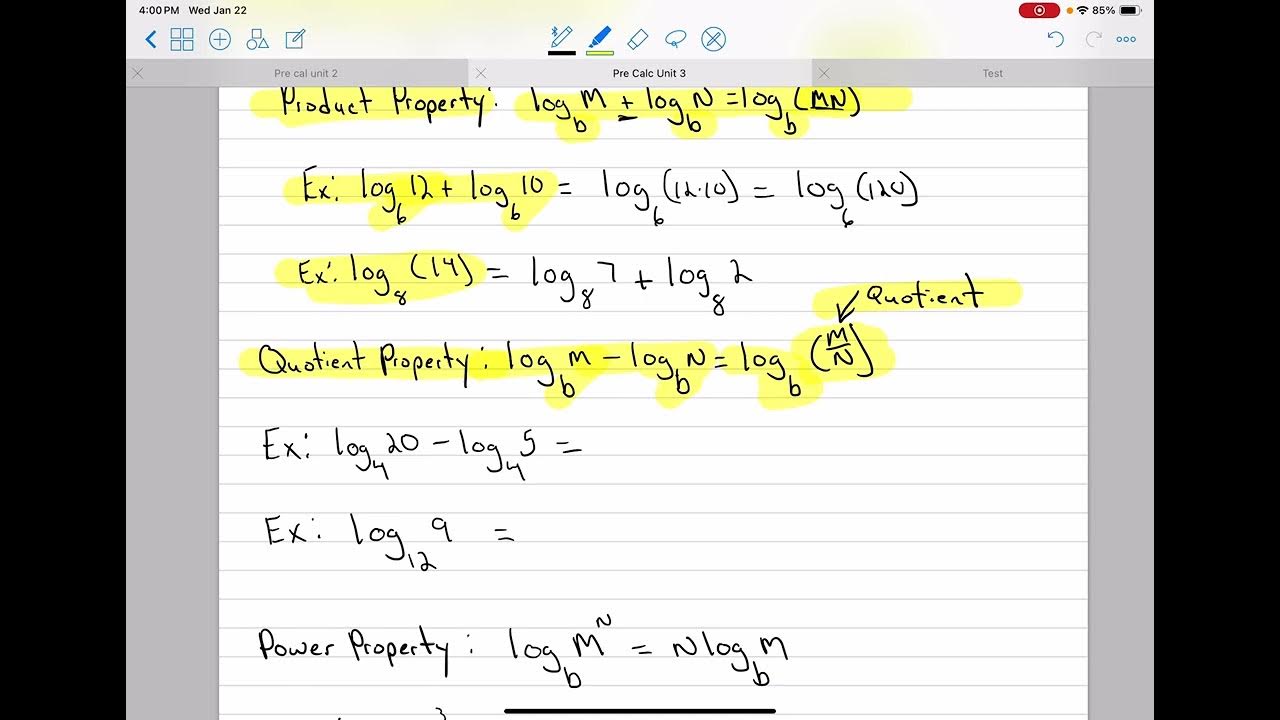 4:00 PM Wed Jan 22 85%
Pre cal unit 2 Pre Calc Unit 3 Test
Product Property: log_b M + log_b N = log_b (MN)
Ex: log_6 12 + log_6 10 = log_6 (12·10) = log_6 (120)
Ex: log_8 (14) = log_8 7 + log_8 2
Quotient
Quotient Property: log_b M - log_b N = log_b (M/N)
Ex: log_4 20 - log_4 5 =
Ex: log_12 9 =
Power Property: log_b M^N = N log_b M